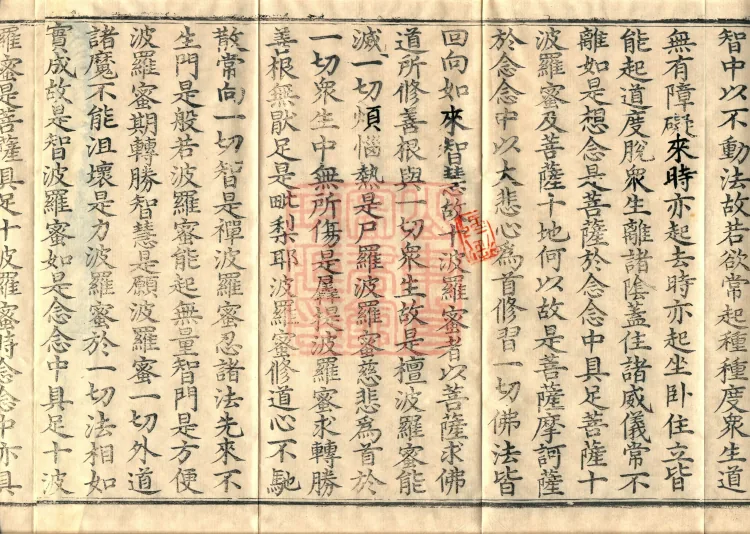 智中以不動法故若欲常起種種度衆生道
無有障礙來時亦起去時亦起坐卧住立皆
能起道度脫衆生離諸陰蓋住諸威儀常不
離如是想念是菩薩於念念中具足菩薩十
波羅蜜及菩薩十地何以故是菩薩摩訶薩
於念念中以大悲心爲首修習一切佛法皆
回向如來智慧故十波羅蜜者以菩薩求佛
道所修善根與一切衆生故是檀波羅蜜能
滅一切煩惱熱是尸羅波羅蜜慈悲爲首於
一切衆生中無所傷是羼提波羅蜜求轉勝
善根無猒足是毗梨耶波羅蜜修道心不馳
散常向一切智是禪波羅蜜忍諸法先來不
生門是般若波羅蜜能起無量智門是方便
波羅蜜期轉勝智慧是願波羅蜜一切外道
諸魔不能沮壞是力波羅蜜於一切法相如
實成故是智波羅蜜如是念念中具足十波
羅蜜是菩薩具足十波羅蜜時念念中亦具